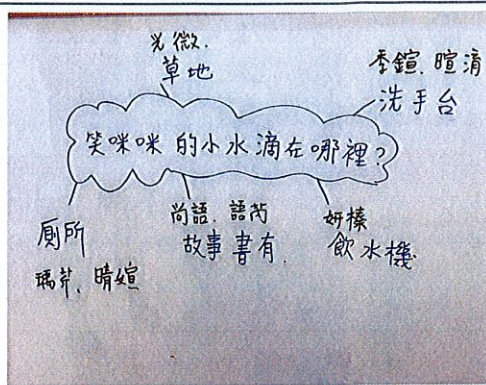 光微.
草地
季鍹、暄淯
洗手台
笑咪咪的小水滴在哪裡?
廁所
瑪芹、晴媗
尚語、語芮
故事書有.
妍榛
飲水機